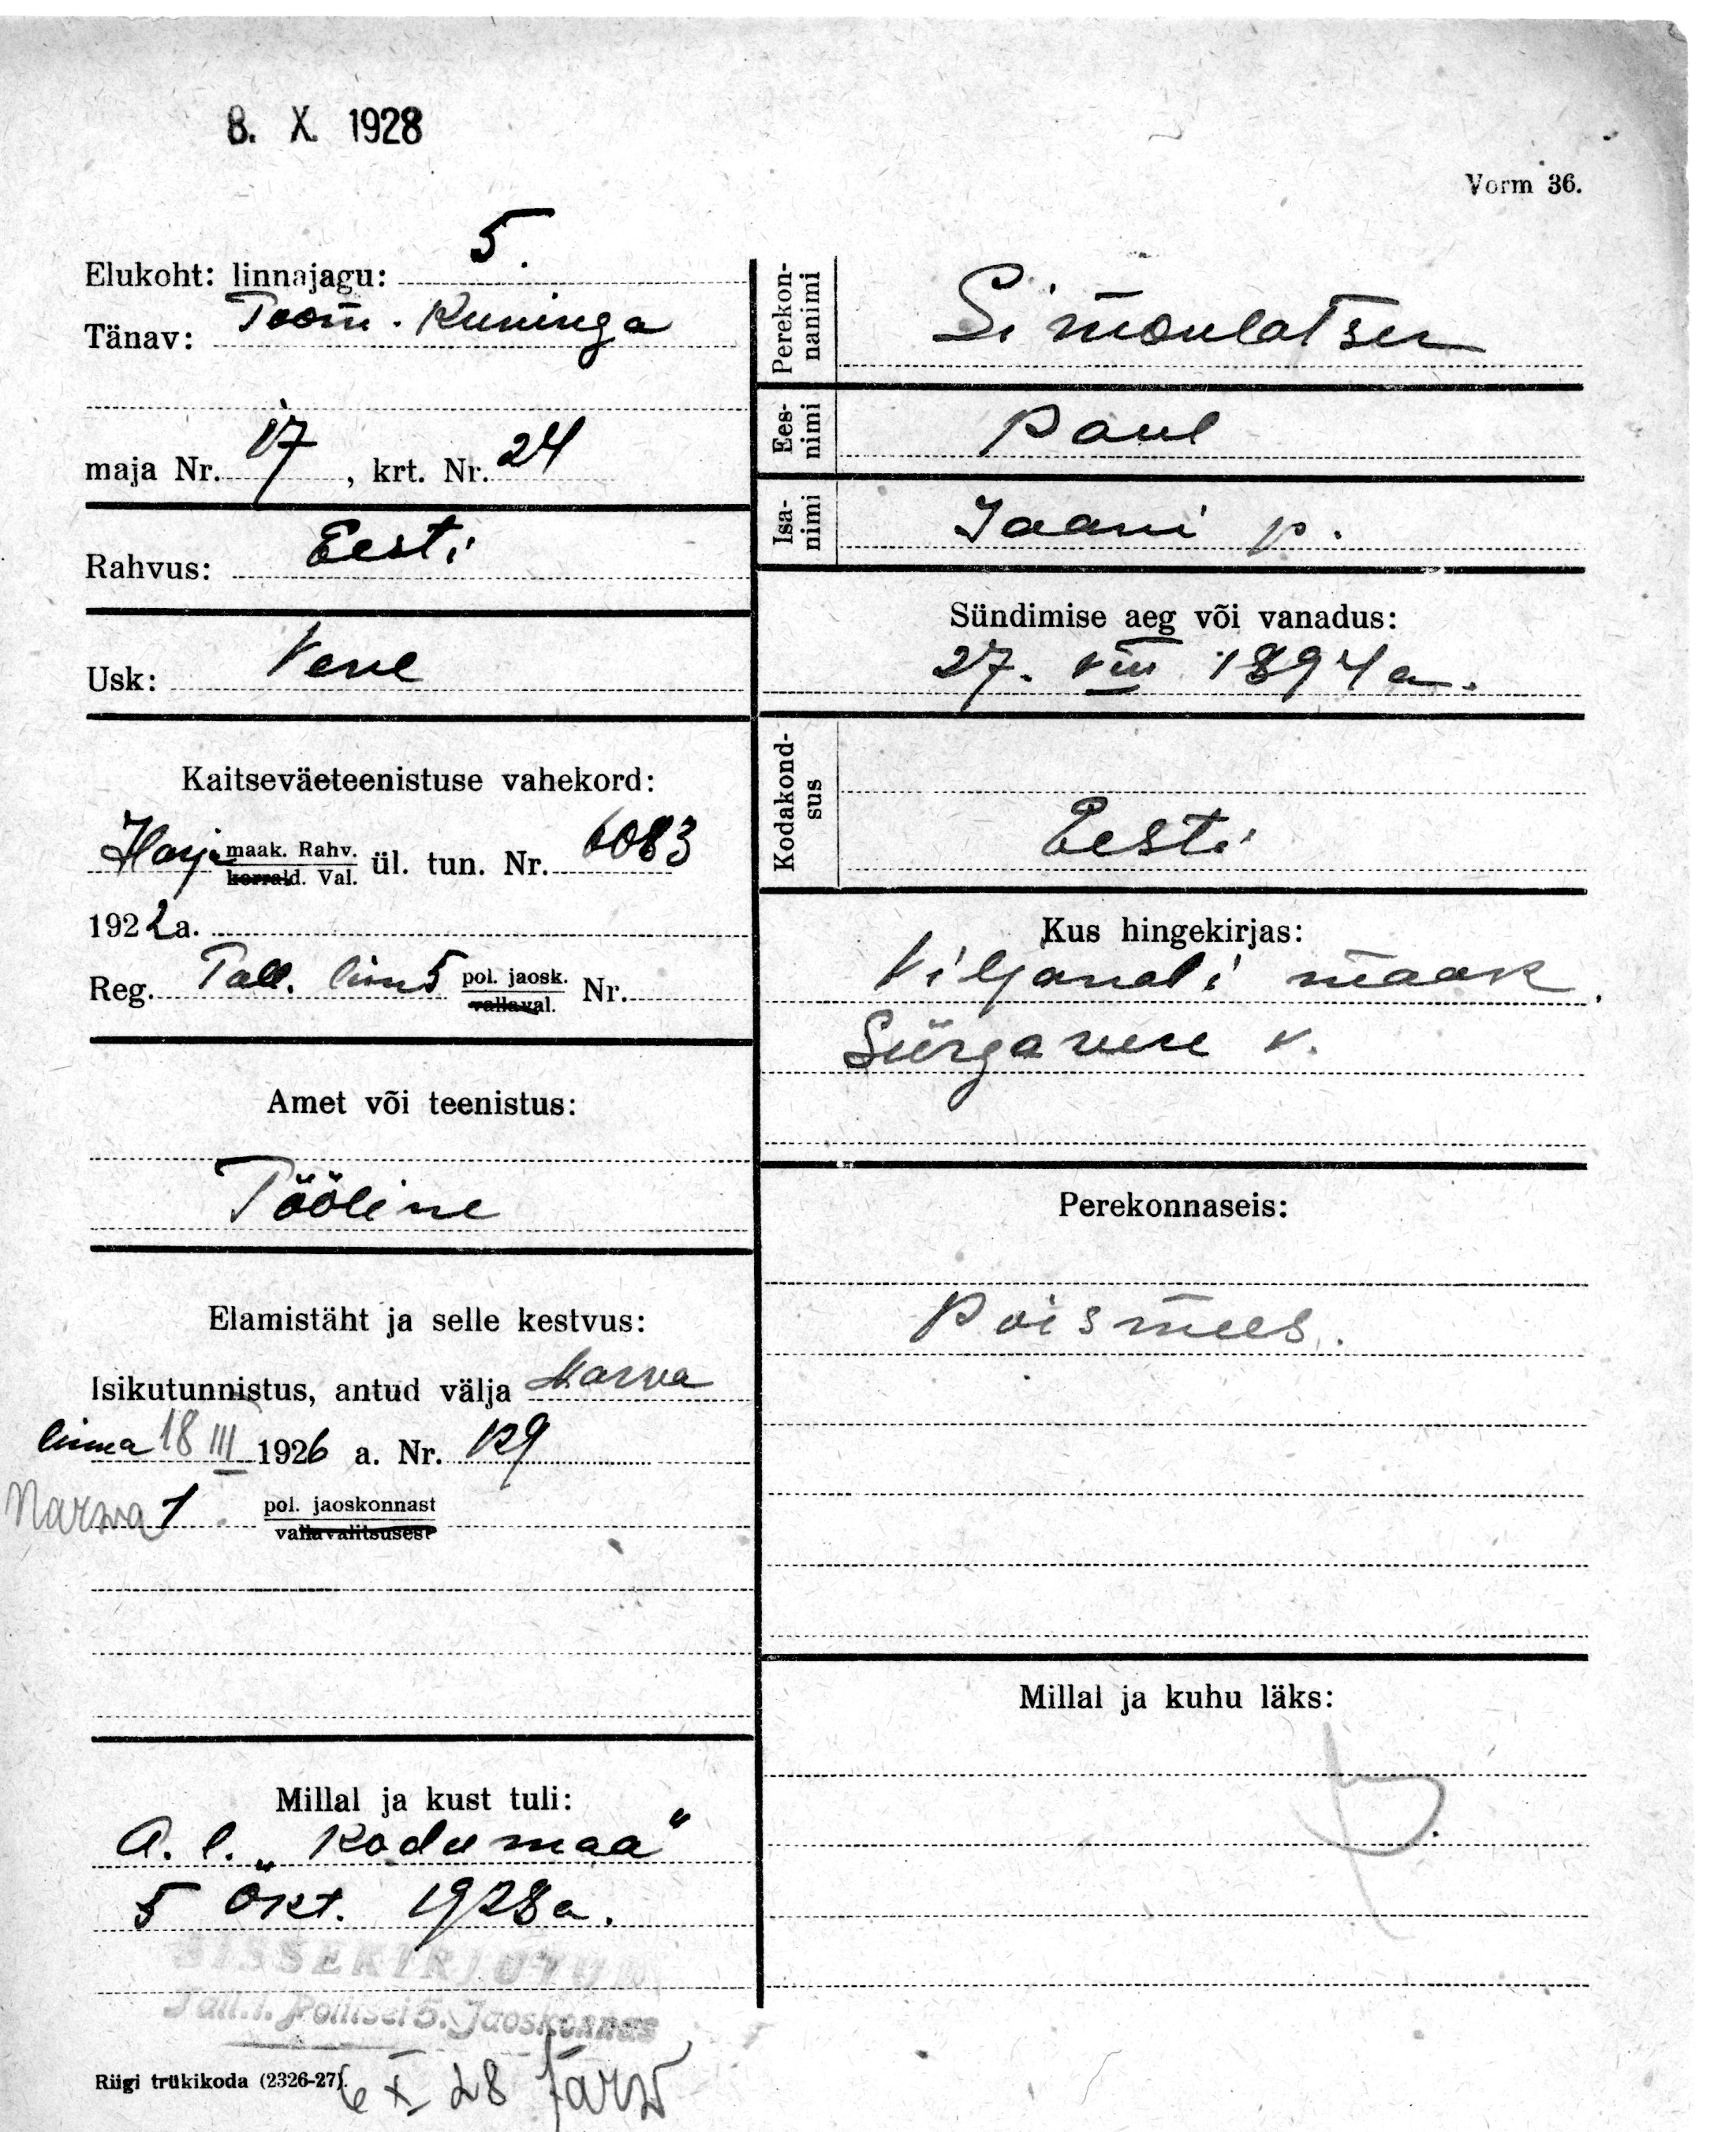 8. X. 1928
Vorm 36.
Elukoht: linnajagu: 5.
Tänav: Toom. Kuninga
maja Nr. 17, krt. Nr. 24
Rahvus: Eesti
Usk: Vene
Kaitseväeteenistuse vahekord:
Harju maak. Rahv. ül. tun. Nr. 6083
korrald. Val.
1922a.
Reg. Tall. linn 5 pol. jaosk. Nr.
vallaval.
Amet või teenistus:
Tööline
Elamistäht ja selle kestvus:
Isikutunnistus, antud välja Narva
linna 18 III 1926 a. Nr. 129
Narva 1. pol. jaoskonnast
vallavalitsusest
Millal ja kust tuli:
A. l. „Kodumaa"
5 Okt. 1928a.
SISSEKIRJUTUD
Tall. l. Politsei 5. Jaoskonnas
Riigi trükikoda (2326-27).
6 X 28 Järw
Perekon-
nanimi
Simonlatser
Ees-
nimi
Paul
Isa-
nimi
Jaani p.
Sündimise aeg või vanadus:
27. VIII 1894 a.
Kodakond-
sus
Eesti
Kus hingekirjas:
Viljandi maak.
Sürgavere v.
Perekonnaseis:
Poismees.
Millal ja kuhu läks: